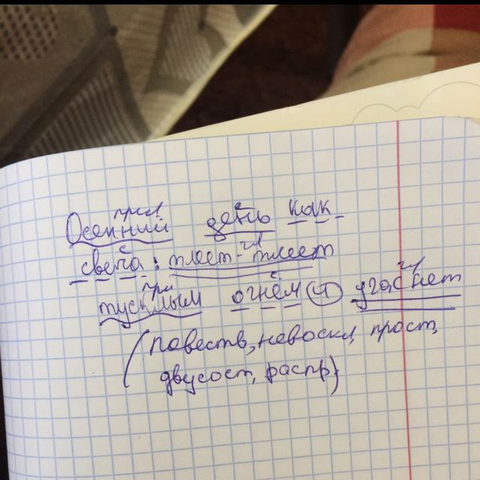 прил
Осенний день как
свеча: тлеет-тлеет
тусклым огнём и угасает
(повеств, невоскл, прост,
двусост, распр)